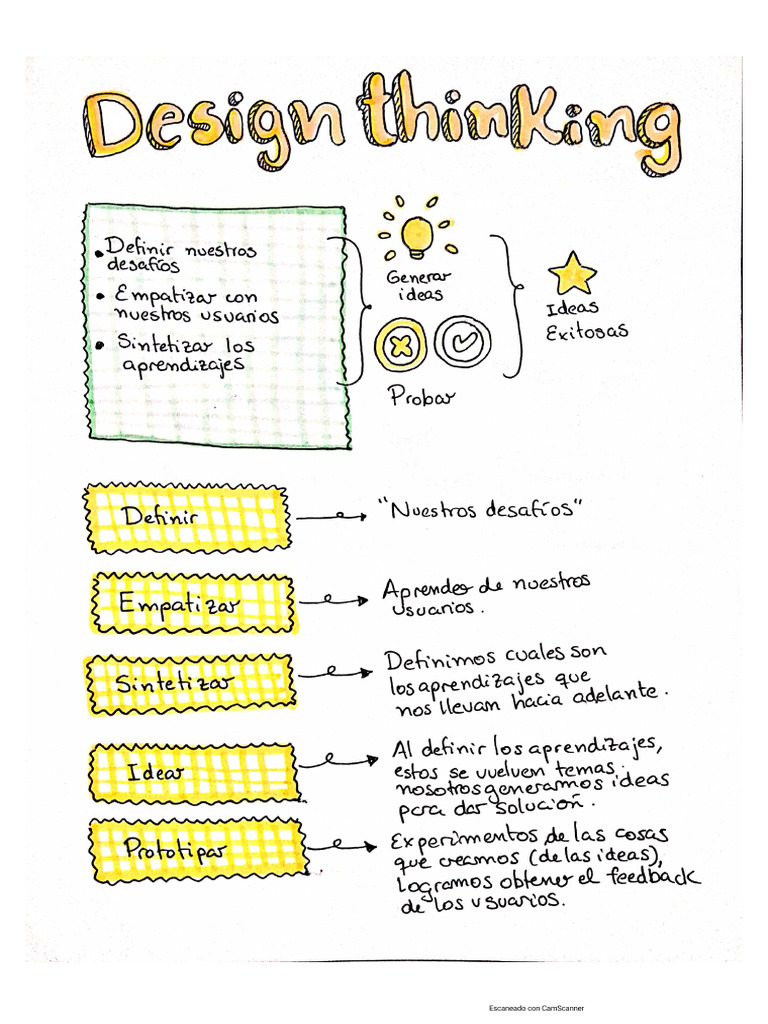 Design thinking
• Definir nuestros
desafíos
• Empatizar con
nuestros usuarios
• Sintetizar los
aprendizajes
Generar
ideas
Probar
Ideas
Exitosas
Definir
"Nuestros desafíos"
Empatizar
Aprender de nuestros
usuarios.
Sintetizar
Definimos cuales son
los aprendizajes que
nos llevan hacia adelante.
Idear
Al definir los aprendizajes,
estos se vuelven temas.
nosotros generamos ideas
para dar solución.
Prototipar
Experimentos de las cosas
que creamos (de las ideas),
Logramos obtener el feedback
de los usuarios.
Escaneado con CamScanner